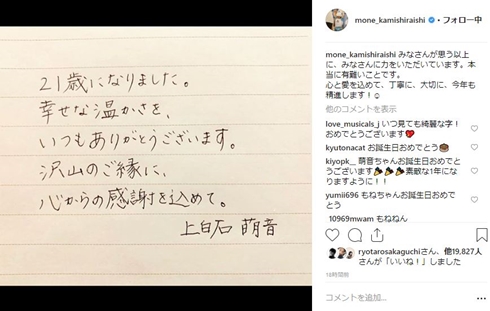 21歳になりました。
幸せな温かさを、
いつもありがとうございます。
沢山のご縁に、
心からの感謝を込めて。
上白石 萌音
mone_kamishiraishi • フォロー中
mone_kamishiraishi みなさんが思う以上
に、みなさんに力をいただいています。本
当に有難いことです。
心と愛を込めて、丁寧に、大切に、今年も
精進します！☺
他のコメントを表示
love_musicals_j いつ見ても綺麗な字！
おめでとうございます❤
kyutonacat お誕生日おめでとう🎂
kiyopk__ 萌音ちゃんお誕生日おめでと
うございます🎉🎉🎉素敵な1年にな
りますように！！
yumii696 もねちゃんお誕生日おめで
とう
10969mwam もねねん
ryotarosakaguchiさん、他19,827人
さんが「いいね！」しました
18時間前
コメントを追加...